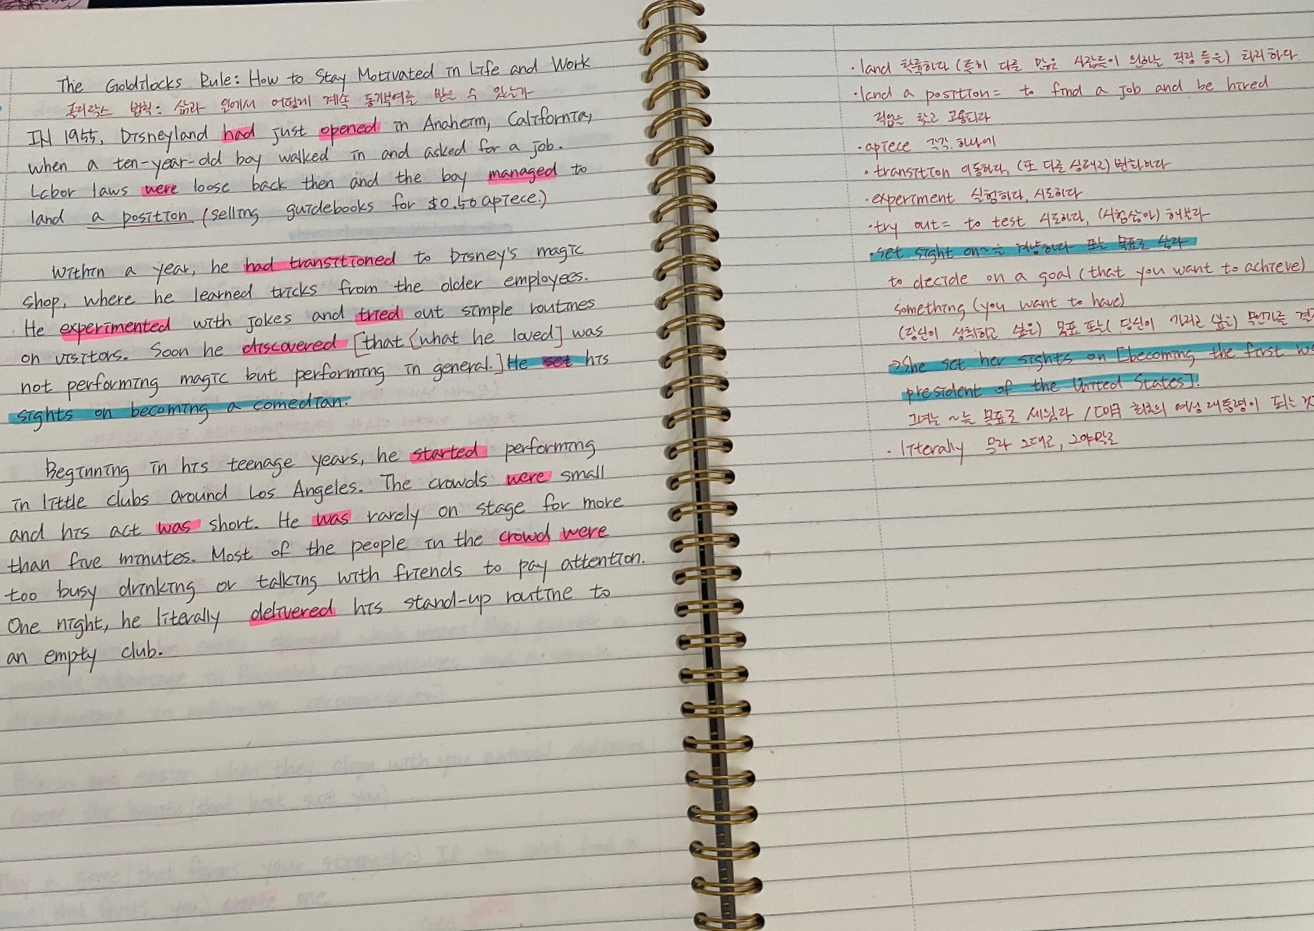 The Goldilocks Rule: How to Stay Motivated in Life and Work
골디락스 법칙: 삶과 일에서 어떻게 계속 동기부여를 받을 수 있는가
IN 1955, Disneyland had just opened in Anaheim, California,
when a ten-year-old boy walked in and asked for a job.
Labor laws were loose back then and the boy managed to
land a position (selling guidebooks for $0.50 apiece.)
Within a year, he had transitioned to Disney's magic
shop, where he learned tricks from the older employees.
He experimented with jokes and tried out simple routines
on visitors. Soon he discovered [that (what he loved] was
not performing magic but performing in general.] He set his
sights on becoming a comedian.
Beginning in his teenage years, he started performing
in little clubs around Los Angeles. The crowds were small
and his act was short. He was rarely on stage for more
than five minutes. Most of the people in the crowd were
too busy drinking or talking with friends to pay attention.
One night, he literally delivered his stand-up routine to
an empty club.
· land 획득하다 (특히 다른 많은 사람들이 원하는 직장 등을) 차지하다
· land a position = to find a job and be hired
직업을 찾고 고용되다
· apiece 각각, 하나에
· transition 이동하다, (또 다른 상태로) 변화하다
· experiment 실험하다, 시도하다
· try out = to test 시도하다, (시험삼아) 해보다
· set sight on ~을 겨냥하다 또는 목표로 삼다
to decide on a goal (that you want to achieve)
something (you want to have)
(당신이 성취하고 싶은) 목표 또는 (당신이 가지고 싶은) 무언가를
→ She set her sights on [becoming the first
president of the United States].
그녀는 ~을 목표로 세웠다 / 미국 최초의 여성 대통령이 되는
· literally 문자 그대로, 그야말로